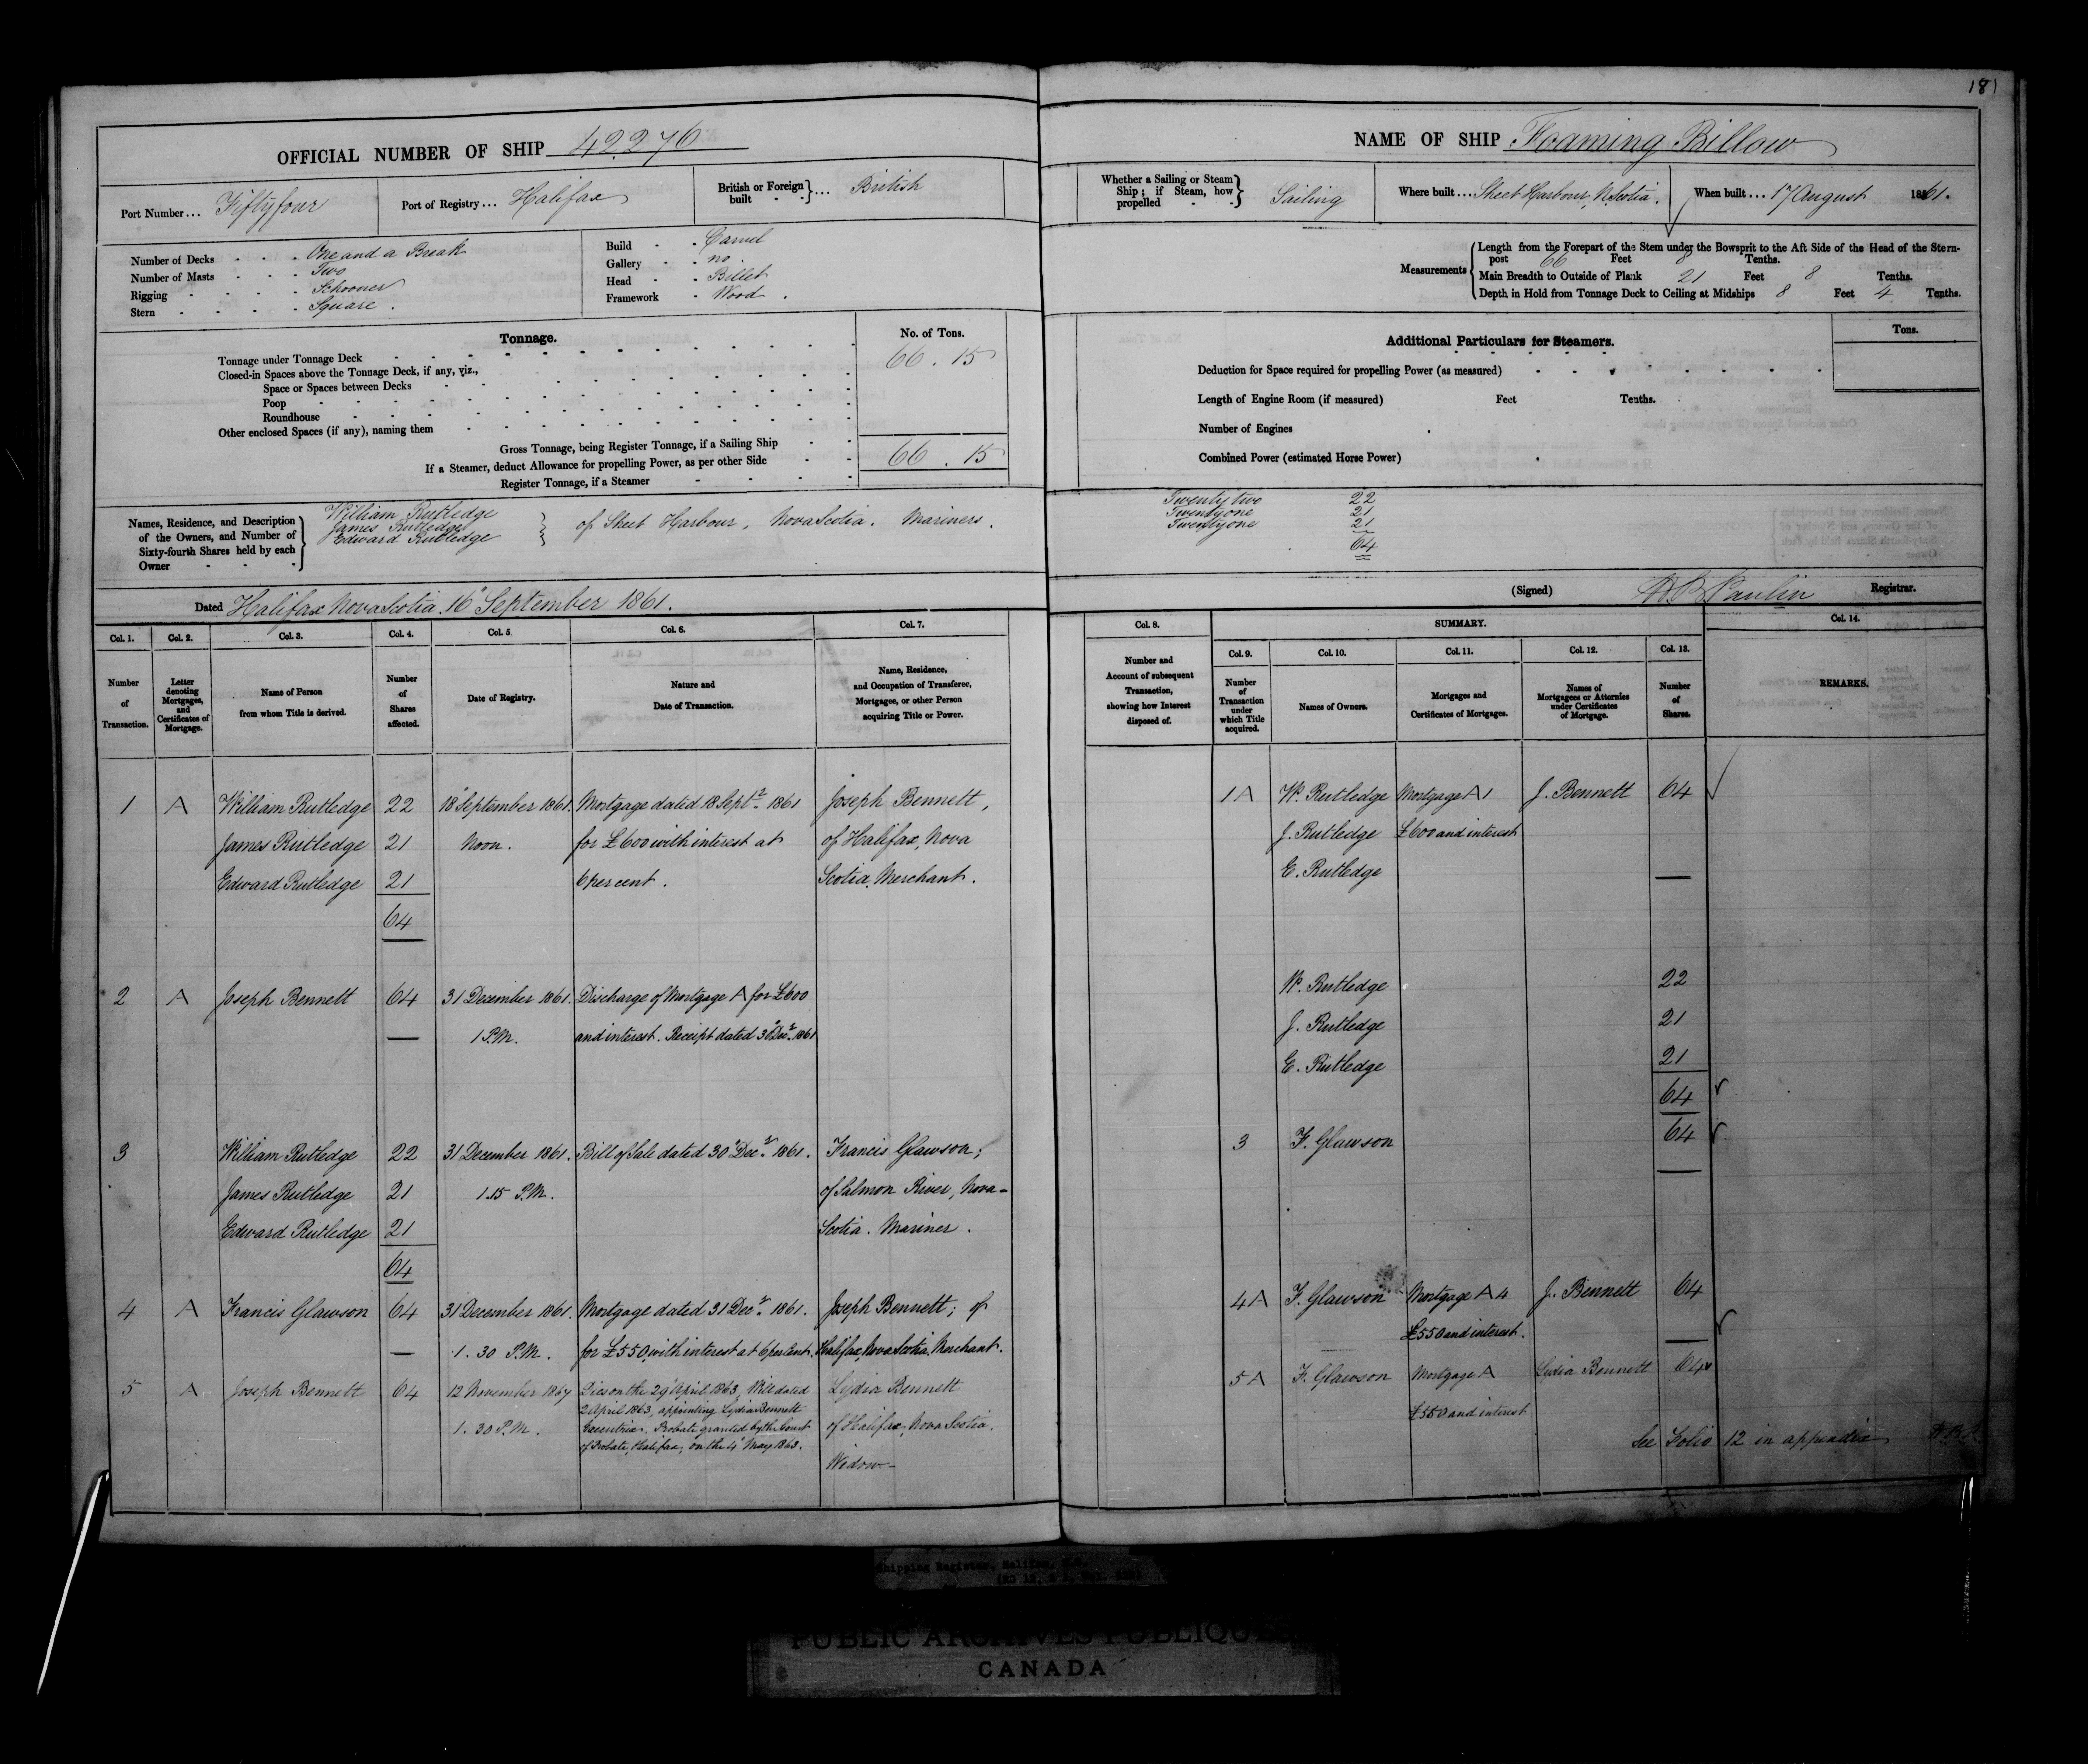 181
OFFICIAL NUMBER OF SHIP 42276
Port Number... Fiftyfour
Port of Registry... Halifax
British or Foreign built } ... British
Number of Decks - - - One and a Break
Number of Masts - - - Two
Rigging - - - - Schooner
Stern - - - - Square.
Build - - Carvel
Gallery - - no.
Head - - Billet
Framework - Wood.
Tonnage.
No. of Tons.
Tonnage under Tonnage Deck 66.15
Closed-in Spaces above the Tonnage Deck, if any, viz.,
Space or Spaces between Decks
Poop
Roundhouse
Other enclosed Spaces (if any), naming them
Gross Tonnage, being Register Tonnage, if a Sailing Ship 66.15
If a Steamer, deduct Allowance for propelling Power, as per other Side
Register Tonnage, if a Steamer
Names, Residence, and Description
of the Owners, and Number of
Sixty-fourth Shares held by each
Owner
William Rutledge
James Rutledge
Edward Rutledge
of Sheet Harbour, Nova Scotia. Mariners.
Dated Halifax Nova Scotia. 16" September 1861.
NAME OF SHIP Foaming Billow
Whether a Sailing or Steam
Ship; if Steam, how
propelled
Sailing
Where built.... Sheet Harbour, N. Scotia.
When built... 17 August 1861.
Measurements
Length from the Forepart of the Stem under the Bowsprit to the Aft Side of the Head of the Stern-
post 66 Feet 8 Tenths.
Main Breadth to Outside of Plank 21 Feet 8 Tenths.
Depth in Hold from Tonnage Deck to Ceiling at Midships 8 Feet 4 Tenths.
Additional Particulars for Steamers.
Tons.
Deduction for Space required for propelling Power (as measured)
Length of Engine Room (if measured) Feet Tenths.
Number of Engines
Combined Power (estimated Horse Power)
Twenty two 22
Twenty one 21
Twenty one 21
64
(Signed) Paulin Registrar.
Col. 1. Col. 2. Col. 3. Col. 4. Col. 5. Col. 6. Col. 7.
Number
of
Transaction.
Letter
denoting
Mortgages,
and
Certificates of
Mortgage.
Name of Person
from whom Title is derived.
Number
of
Shares
affected.
Date of Registry.
Nature and
Date of Transaction.
Name, Residence,
and Occupation of Transferee,
Mortgagee, or other Person
acquiring Title or Power.
1 A William Rutledge 22 18" September 1861. Mortgage dated 18 Septr. 1861 Joseph Bennett,
James Rutledge 21 Noon. for £600 with interest at of Halifax, Nova
Edward Rutledge 21 6 per cent. Scotia, Merchant.
64
2 A Joseph Bennett 64 31 December 1861. Discharge of Mortgage A for £600
1 P.M. and interest. Receipt dated 30" Decr. 1861
3 William Rutledge 22 31 December 1861. Bill of Sale dated 30" Decr. 1861. Francis Glawson;
James Rutledge 21 1.15 P.M. of Salmon River, Nova-
Edward Rutledge 21 Scotia. Mariner.
64
4 A Francis Glawson 64 31 December 1861. Mortgage dated 31 Decr. 1861. Joseph Bennett; of
1.30 P.M. for £550, with interest at 6 per cent. Halifax, Nova Scotia, Merchant.
5 A Joseph Bennett 64 12 November 1867 Dies on the 29" April 1863, Will dated Lydia Bennett
2 April 1863, appointing Lydia Bennett
1.30 P.M. Executrix. Probate granted by the Court of Halifax, Nova Scotia.
of Probate, Halifax, on the 4" May 1863.
Widow-
Col. 8. SUMMARY. Col. 14.
Col. 9. Col. 10. Col. 11. Col. 12. Col. 13.
Number and
Account of subsequent
Transaction,
showing how Interest
disposed of.
Number
of
Transaction
under
which Title
acquired.
Names of Owners.
Mortgages and
Certificates of Mortgages.
Names of
Mortgagees or Attornies
under Certificates
of Mortgage.
Number
of
Shares.
REMARKS.
1 A W. Rutledge Mortgage A 1 J. Bennett 64
J. Rutledge £600 and interest
E. Rutledge
W. Rutledge 22
J. Rutledge 21
E. Rutledge 21
64
3 F. Glawson 64
4 A F. Glawson Mortgage A 4 J. Bennett 64
£550 and interest.
5 A F. Glawson Mortgage A Lydia Bennett 64
£550 and interest
See Folio 12 in appendix
Shipping Register, Halifax,
PUBLIC ARCHIVES PUBLIQUES
CANADA